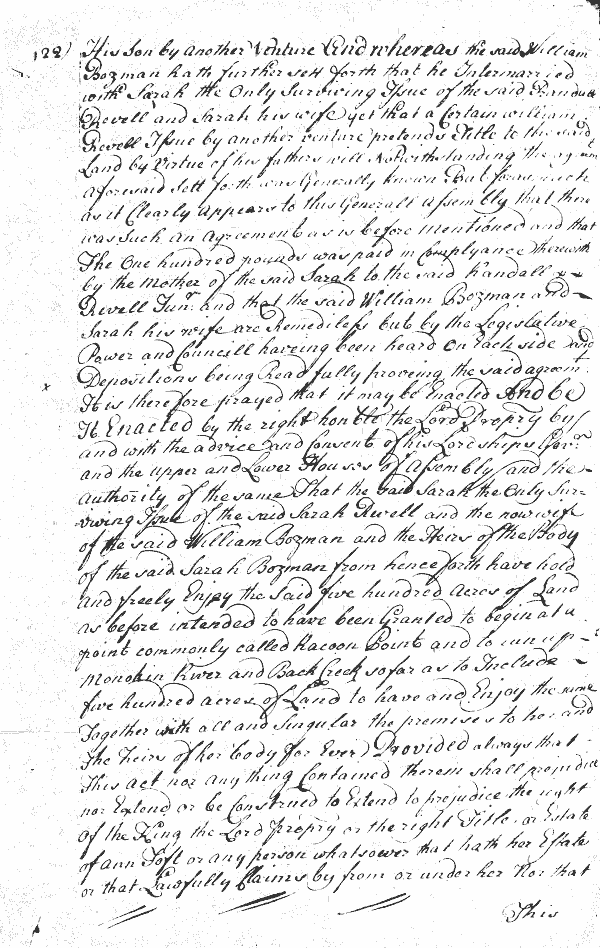 122)
His Son by another Venture And whereas the said William
Bozman hath further sett forth that he Intermarried
with Sarah the Only Surviving Issue of the said Randall
Revell and Sarah his wife yet that a Certain William
Revell Issue by another venture pretends Title to the said
Land by Virtue of his fathers will Notwithstanding the agreem
aforesaid Sett forth was Generally known But forasmuch
as it Clearly appears to this Generall Assembly that there
was Such an Agreement as is before mentioned and that
The One hundred pounds was paid in Complyance therewith
by the Mother of the said Sarah to the said Randall
Revell Junr. and that the said William Bozman and
Sarah his wife are Remediless but by the Legislative
Power and Councill haveing been heard on Each side and
Depositions being Read fully proveing the said agreemt
x It is therefore prayed that it may be Enacted And be
It Enacted by the right honble the Lord Propry by
and with the advice and Consent of his Lordships Govr.
and the upper and Lower Houses of Assembly and the
Authority of the same That the said Sarah the Only Sur-
viving Issue of the said Sarah Revell and the now wife
of the said William Bozman and the Heirs of the Body
of the said Sarah Bozman from henceforth have hold
and freely Enjoy the Said five hundred acres of Land
as before intended to have been Granted to begin at a
point commonly called Racoon Point and to run up
Monokin River and Back Creek so far as to Include
five hundred acres of Land to have and Enjoy the same
Together with all and Singular the premises to her and
the Heirs of her body for Ever) Provided always that
This act nor any thing Contained therein shall prejudice
nor Extend or be Construed to Extend to prejudice the right
of the King the Lord propry or the right Title or Estate
of ann Toft or any person whatsoever that hath her Estate
or that Lawfully Claims by from or under her Nor that
This